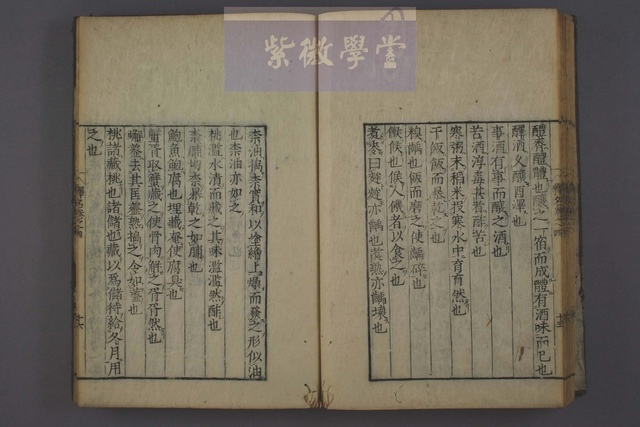 紫微學堂
醴齊醴體也釀之一宿而成體有酒味而已也
醳酒久釀酉澤也
事酒有事而釀之酒也
苦酒淳毒甚者酢苦也
寒粥末稻米投寒水中育育然也
干飯飯而暴乾之也
糗齲也飯而磨之使齲碎也
餱候也候人飢者以食之也
煮麥曰麮麮亦齲也煮熟亦齲壞也
柰油擣柰實和以塗繒上燥而發之形似油
也柰油亦如之
桃濫水漬而藏之其味濫濫然酢也
柰脯切柰暴乾之如脯也
鮑魚鮑腐也埋藏奄使腐臭也
蟹胥取蟹藏之使骨肉解之胥胥然也
蟹齏去其匡齏熟擣之令如齏也
桃諸藏桃也諸儲也藏以爲儲待給冬月用
之也